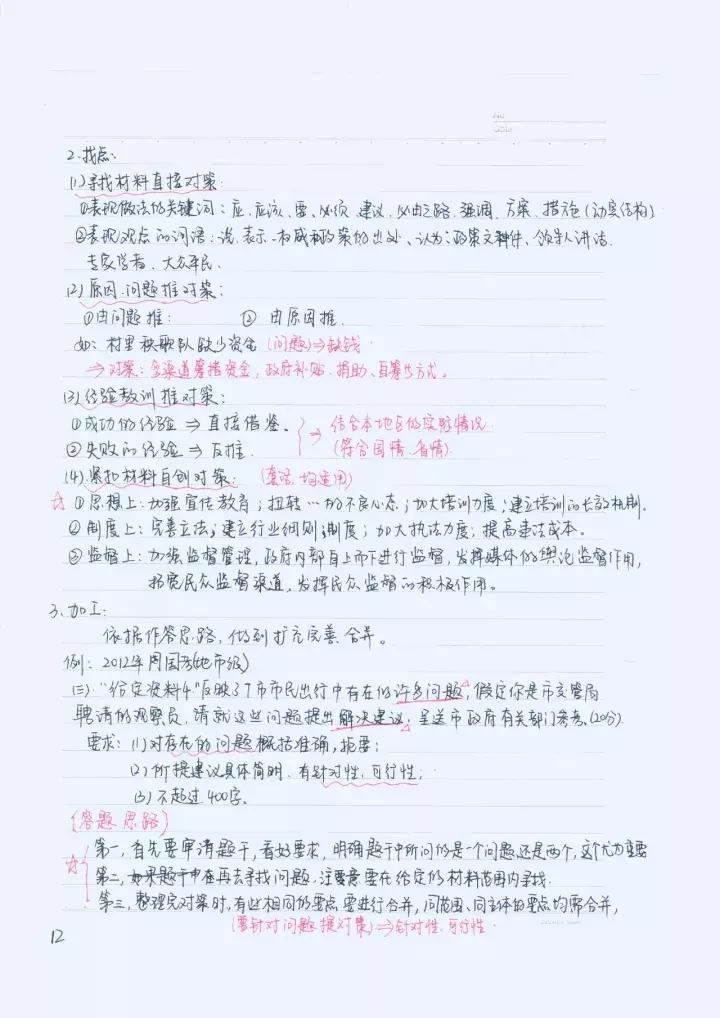 2.找点:
(1)寻找材料直接对策:
①表现做法的关键词:应、应该、要、必须、建议、必由之路、强调、方案、措施(动宾结构)
②表现观点的词语:说、表示、权威和政策的出处、认为:政策文件、领导人讲话、
专家学者、大众平民.
(2)原因.问题推对策:
①由问题推: ② 由原因推.
如:村里秧歌队缺少资金 (问题)⇒缺钱
⇒对策:多渠道筹措资金,政府补贴、捐助、自筹等方式。
(3)经验教训推对策:
①成功的经验 ⇒ 直接借鉴。
②失败的经验 ⇒ 反推.
⇒ 结合本地区的实际情况.
(符合国情.省情).
(4)紧扣材料自创对策: (套话.均适用)
☆ ①思想上:加强宣传教育;扭转…的不良心态;加大培训力度;建立培训的长效机制.
②制度上:完善立法;建立行业细则;制度;加大执法力度;提高违法成本。
③监督上:加强监督管理,政府内部自上而下进行监督,发挥媒体的舆论监督作用,
拓宽民众监督渠道,发挥民众监督的积极作用。
3.加工:
依据作答思路,做到扩充完善.合并。
例:2012年周国考(地市级)
(三)."给定资料4"反映了T市市民出行中存在的许多问题,假定你是市交管局
聘请的观察员,请就这些问题提出解决建议,呈送市政府有关部门参考.(20分).
要求:(1)对存在的问题概括准确,扼要;
(2)所提建议具体简明、有针对性、可行性;
(3)不超过400字。
(答题思路)
☆ 第一,首先要审清题干,看好要求,明确题干中所问的是一个问题还是两个,这个尤为重要
第二,如果题干中在再去寻找问题.注意要在给定的材料范围内寻找.
第三,整理完对策时,有些相同的要点要进行合并,同范围、同主体的要点均需合并,
(要针对问题提对策)⇒针对性.可行性.
12